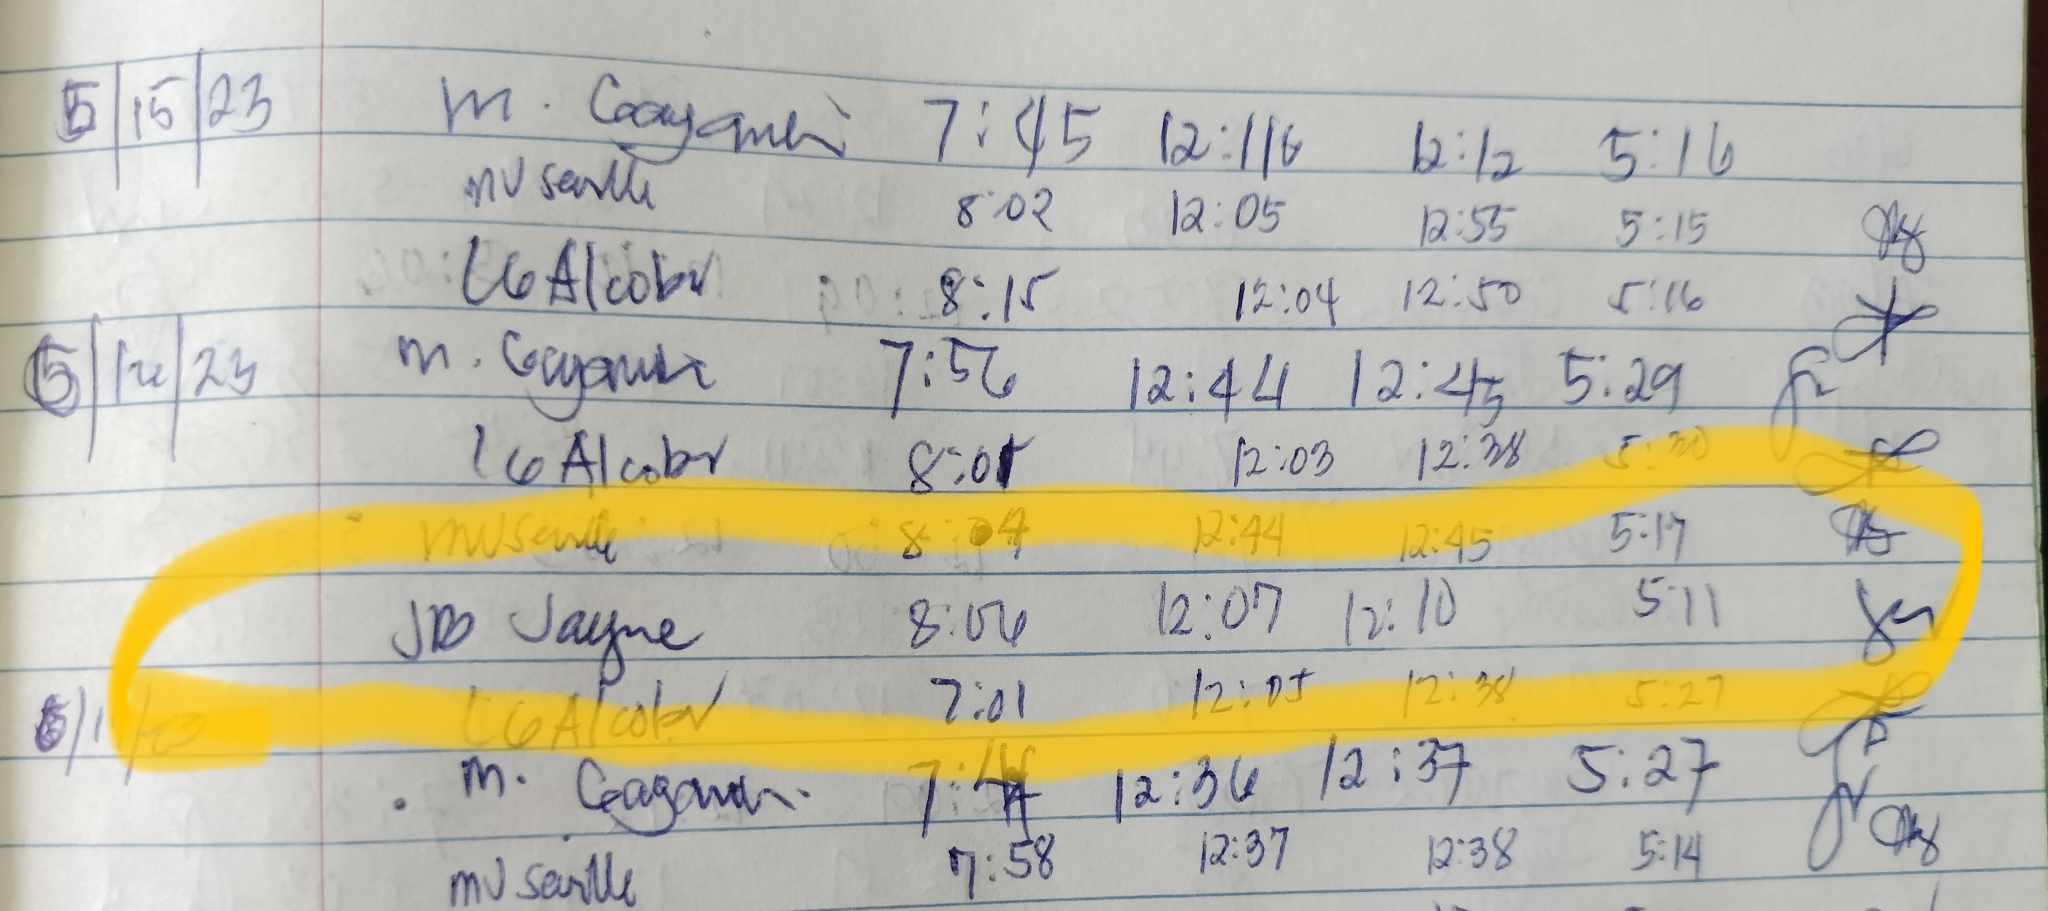 5 | 15 | 23 M. 7:45 12:16 12:12 5:16
MV Seville 8:02 12:05 12:55 5:15
LG Alcober 8:15 12:04 12:50 5:16
5 | 16 | 23 M. 7:56 12:44 12:45 5:29
LG Alcober 8:01 12:03 12:38 5:30
MV Seville 8:04 12:44 12:45 5:17
JDB Jayne 8:06 12:07 12:10 5:11
LG Alcober 7:01 12:05 12:38 5:27
M. 12:36 12:37 5:27
MV Seville 7:58 12:37 12:38 5:14